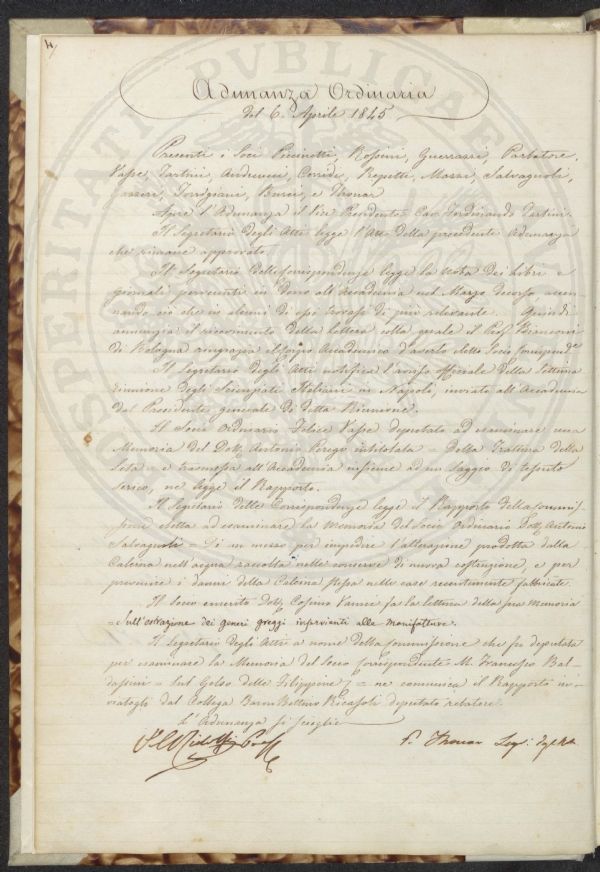 4/
PROSPERITATI PUBLICAE
Adunanza Ordinaria
del 6. Aprile 1845
Presenti i Soci Piccinetti, Rosini, Guerrazzi, Parlatore,
Vasse, Tartini, Andreucci, Corridi, Repetti, Mazzi, Salvagnoli,
Gazzeri, Torrigiani, Burci, e Thouar
Apre l'Adunanza il Vice Presidente Cav. Ferdinando Tartini.
Il Segretario degli Atti legge l'Atto della precedente Adunanza
che rimane approvato.
Il Segretario delle Corrispondenze legge la nota dei libri e
giornali pervenuti in dono all'Accademia nel Marzo decorso, accen-
nando ciò che in alcuni di essi trovasi di più rilevante. Quindi
annunzia il ricevimento della lettera colla quale il Prof. Bianconi
di Bologna ringrazia il corpo Accademico d'averlo eletto Socio Corrispond.e
Il Segretario degli Atti notifica l'avviso officiale della Settima
riunione degli Scienziati Italiani in Napoli, inviato all'Accademia
dal Presidente generale di detta Riunione.
Il Socio Ordinario Felice Vasse deputato ad esaminare una
Memoria del Dott. Antonio Perego intitolata = Della Trattura della
Seta = e trasmessa all'Accademia insieme ad un saggio di tessuto
serico, ne legge il Rapporto.
Il Segretario delle Corrispondenze legge il Rapporto della Commis-
sione eletta ad esaminare la Memoria del Socio Ordinario Dott. Antonio
Salvagnoli = Di un mezzo per impedire l'alterazione prodotta dalla
Calcina nell'acqua raccolta nelle conserve di nuova costruzione, e per
prevenire i danni della Calcina stessa nelle case recentemente fabbricate.
Il Socio emerito Dott. Cosimo Vanni fa la lettura della sua Memoria
= Sull'estrazione dei generi greggi inservienti alle Manifatture.
Il Segretario degli Atti a nome della Commissione che fu deputata
per esaminare la Memoria del Socio Corrispondente M. Francesco Bal-
dasseni = Sul Gelso delle Filippine = ne comunica il Rapporto in-
viatogli dal Collega Baron Bettino Ricasoli deputato relatore.
L'Adunanza si scioglie
P. Thouar Seg.